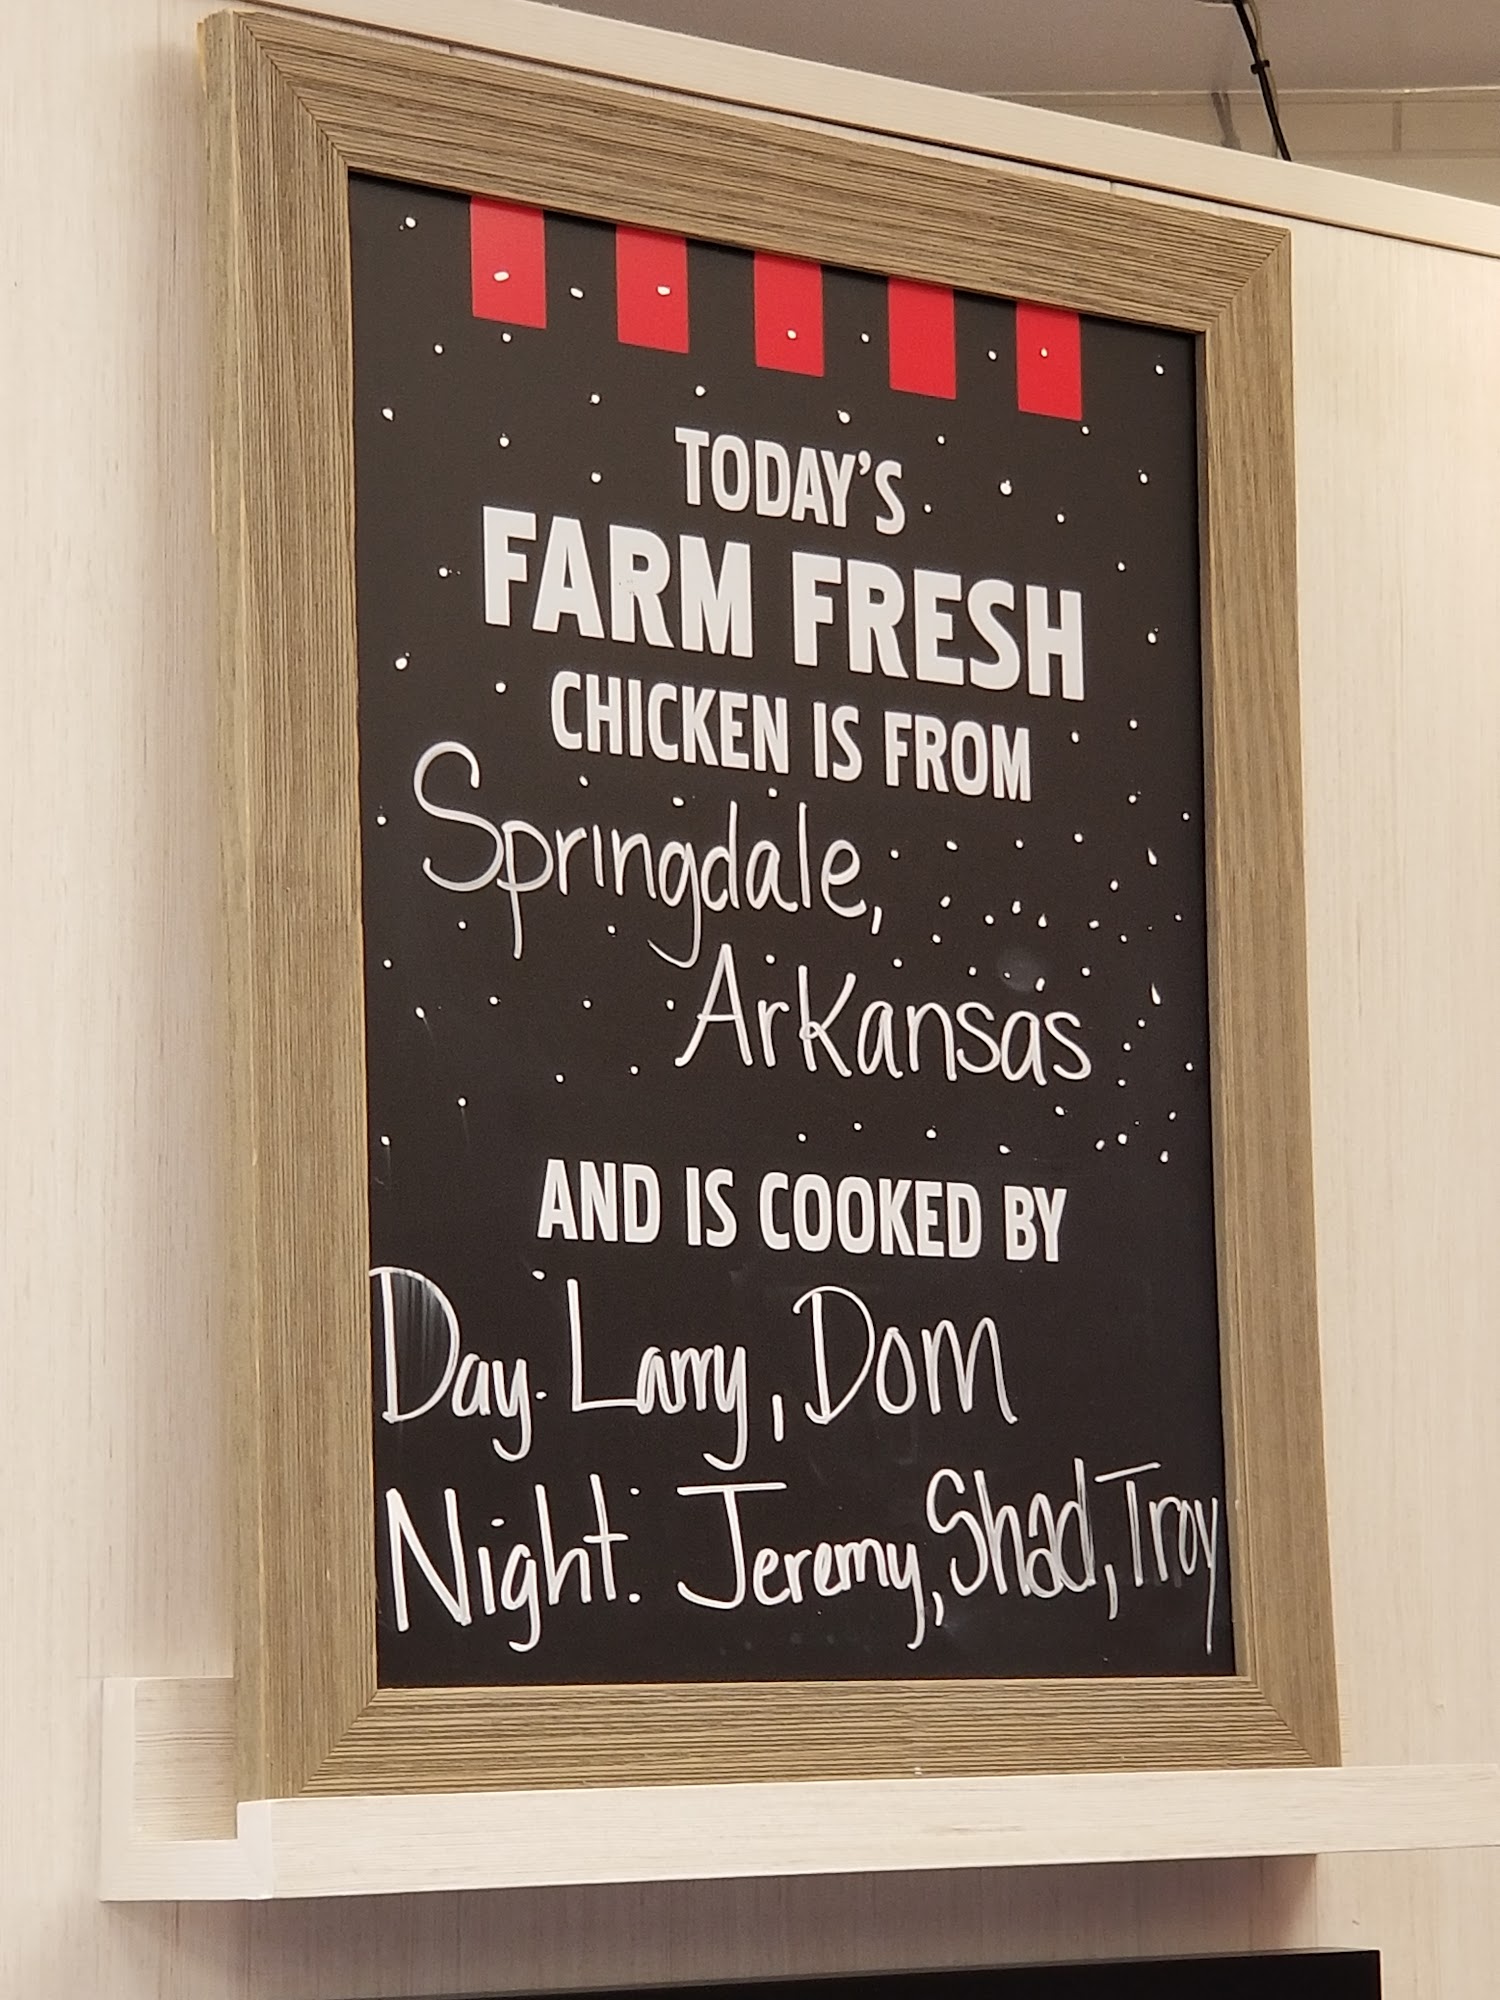 TODAY'S
FARM FRESH
CHICKEN IS FROM
Springdale,
Arkansas
AND IS COOKED BY
Day: Larry, Dom
Night: Jeremy, Shad, Troy